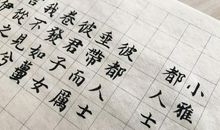 小雅
都人士
彼都人士
垂帶而厲
彼君子女
卷髮如蠆
我不見兮
言從之